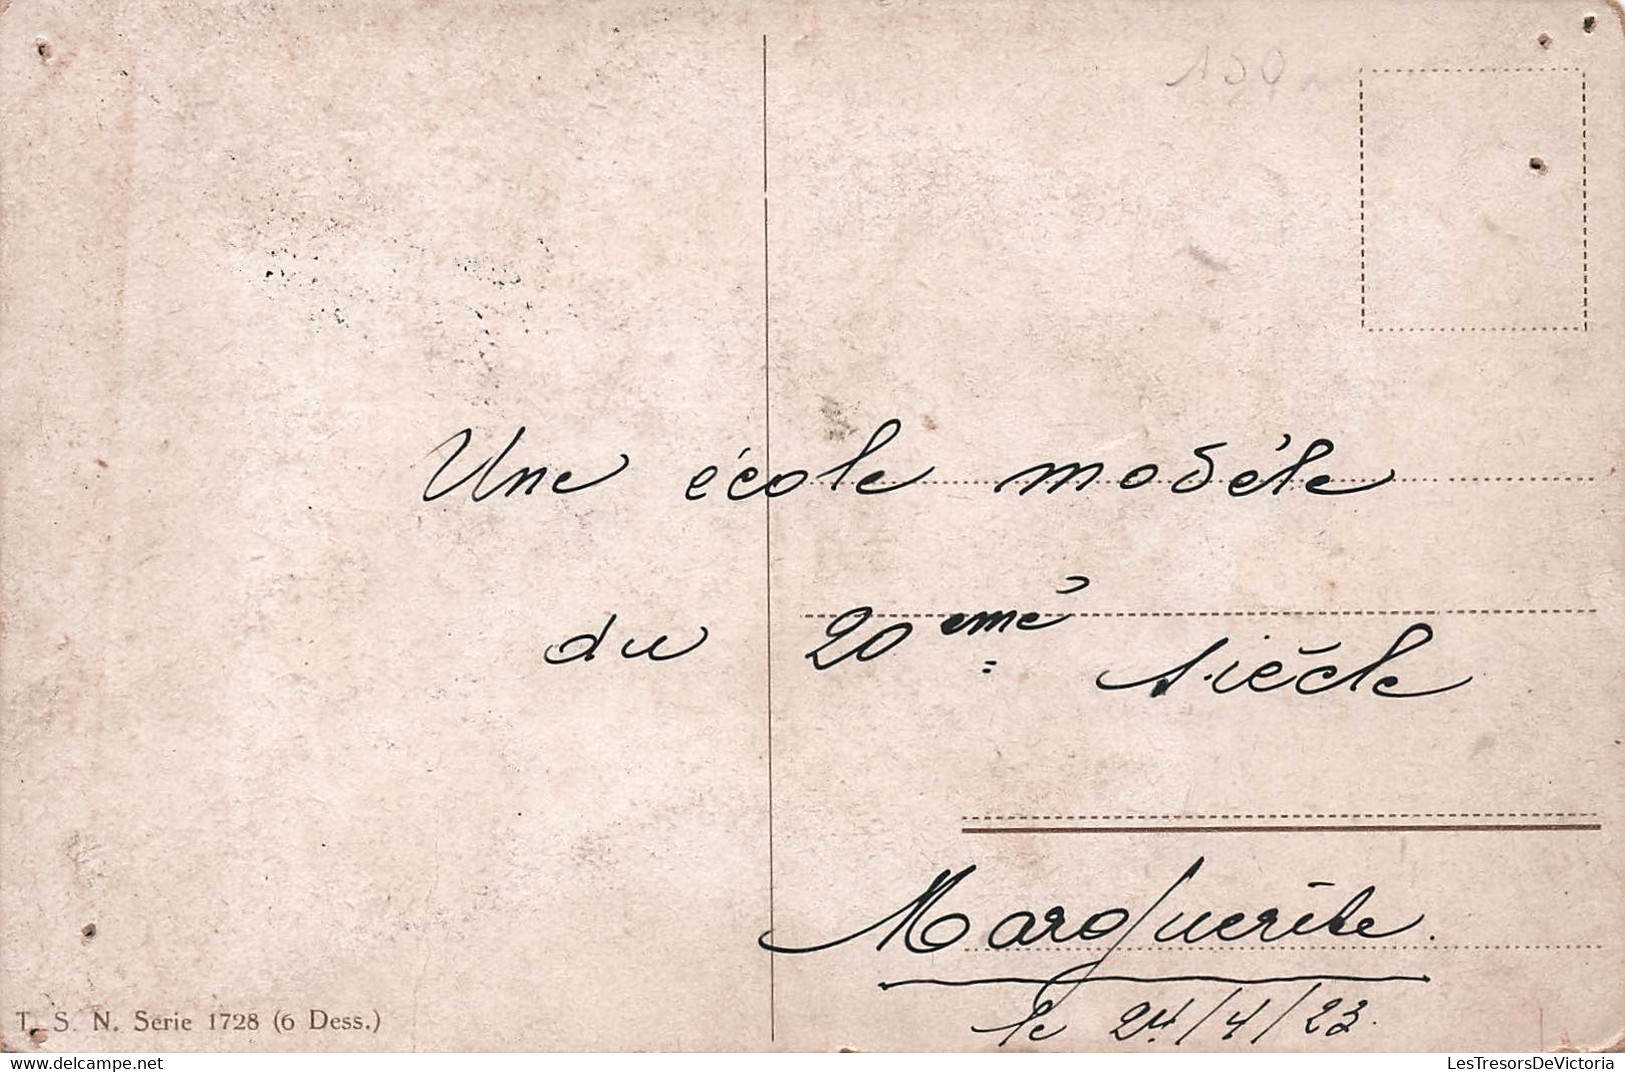 Une école modéle
du 20emé siècle
Marguerite.
le 24/4/23.
T. S. N. Serie 1728 (6 Dess.)
LesTresorsDeVictoria